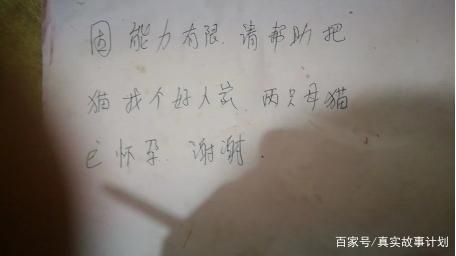 因能力有限.请帮助把
猫找个好人家.两只母猫
已怀孕.谢谢.
百家号/真实故事计划